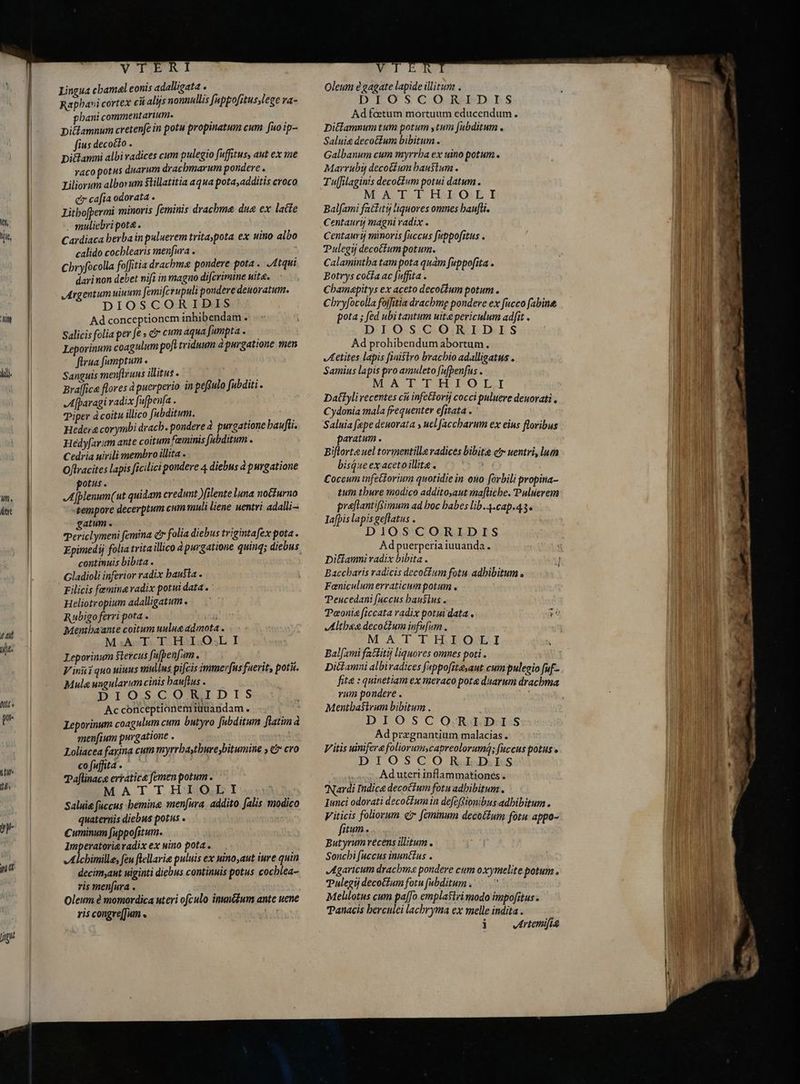 VTERI
Lingua chamæleonis adalligata.
Raphani cortex cũ alijs nonnullis suppositus, lege ra-
phani commentarium.
Dictamnum cretense in potu propinatum cum suo ip-
sius decocto.
Dictamni albi radices cum pulegio suffitus, aut ex me
raco potus duarum drachmarum pondere.
Liliorum alborum stillatitia aqua pota, additis croco
& casia odorata.
Lithospermi minoris seminis drachmæ duæ ex lacte
muliebri potæ.
Cardiaca herba in puluerem trita, pota ex uino albo
calido cochlearis mensura.
Chrysocolla fossitia drachmæ pondere pota. Atqui
dari non debet nisi in magno discrimine uitæ.
Argentum uiuum semiscrupuli pondere deuoratum.
DIOSCORIDIS
Ad conceptionem inhibendam.
Salicis folia per se, & cum aqua sumpta.
Leporinum coagulum post triduum à purgatione men
strua sumptum.
Sanguis menstruus illitus.
Brassicæ flores à puerperio in pessulo subditi.
Asparagi radix suspensa.
Piper à coitu illico subditum.
Hederæ corymbi drach. pondere à purgatione hausti.
Hedysarum ante coitum fœminis subditum.
Cedria uirili membro illita.
Ostracites lapis ficilici pondere 4. diebus à purgatione
potus.
Asplenum (ut quidam credunt) silente luna nocturno
tempore decerptum cum muli liene uentri adalli-
gatum.
Periclymeni semina & folia diebus trigintasex pota.
Epimedij folia trita illico à purgatione quinq; diebus
continuis bibita.
Gladioli inferior radix hausta.
Filicis fœminæ radix potui data.
Heliotropium adalligatum.
Rubigo ferri pota.
Mentha ante coitum uuluæ admota.
MATTHIOLI
Leporinum stercus suspensum.
Vinũ quo uiuus mullus piscis immersus fuerit, potũ.
Mulæ ungularum cinis haustus.
DIOSCORIDIS
Ac conceptionem iuuandam.
Leporinum coagulum cum butyro subditum statim à
mensium purgatione.
Loliacea farina cum myrrha, thure, bitumine, & cro
co suffita.
Pastinacæ erraticæ semen potum.
MATTHIOLI
Saluiæ succus heminæ mensura addito salis modico
quaternis diebus potus.
Cuminum suppositum.
Imperatoriæ radix ex uino pota.
Alchimillæ, seu stellariæ puluis ex uino, aut iure quin
decim, aut uiginti diebus continuis potus cochlea-
ris mensura.
Oleum è momordica uteri osculo inunctum ante uene
ris congressum.
VTERI
Oleum è gagate lapide illitum.
DIOSCORIDIS
Ad fœtum mortuum educendum.
Dictamnum tum potum, tum subditum.
Saluiæ decoctum bibitum.
Galbanum cum myrrha ex uino potum.
Marrubij decoctum haustum.
Tussilaginis decoctum potui datum.
MATTHIOLI
Balsami factitij liquores omnes hausti.
Centaurij magni radix.
Centaurij minoris succus suppositus.
Pulegij decoctum potum.
Calamintha tam pota quàm supposita.
Botrys cocta ac suffita.
Chamæpitys ex aceto decoctum potum.
Chrysocolla fossitia drachmę pondere ex succo sabinæ
pota; sed ubi tantum uitæ periculum adsit.
DIOSCORIDIS
Ad prohibendum abortum.
Aetites lapis sinistro brachio adalligatus.
Samius lapis pro amuleto suspensus.
MATTHIOLI
Dactyli recentes cũ infectorij cocci puluere deuorati.
Cydonia mala frequenter esitata.
Saluia sæpe deuorata, uel saccharum ex eius floribus
paratum.
Bistortæ uel tormentillæ radices bibitæ & uentri, lum
bisque ex aceto illitæ.
Coccum infectorium quotidie in ouo sorbili propina-
tum thure modico addito, aut mastiche. Puluerem
præstantissimum ad hoc habes lib. 4. cap. 43.
Iaspis lapis gestatus.
DIOSCORIDIS
Ad puerperia iuuanda.
Dictamni radix bibita.
Baccharis radicis decoctum fotu adhibitum.
Fœniculum erraticum potum.
Peucedani succus haustus.
Pæoniæ siccata radix potui data.
Altheæ decoctum infusum.
MATTHIOLI
Balsami factitij liquores omnes poti.
Dictamni albi radices suppositæ, aut cum pulegio suf-
fitæ: quinetiam ex meraco potæ duarum drachma
rum pondere.
Menthastrum bibitum.
DIOSCORIDIS
Ad prægnantium malacias.
Vitis uiniferæ foliorum, capreolorumq; succus potus.
DIOSCORIDIS
Ad uteri inflammationes.
Nardi Indicæ decoctum fotu adhibitum.
Iunci odorati decoctum in desessionibus adhibitum.
Viticis foliorum & seminum decoctum fotu appo-
situm.
Butyrum recens illitum.
Sonchi succus inunctus.
Agaricum drachmæ pondere cum oxymelite potum.
Pulegij decoctum fotu subditum.
Melilotus cum passo emplastri modo impositus.
Panacis herculei lachryma ex melle indita.
i Artemisiæ